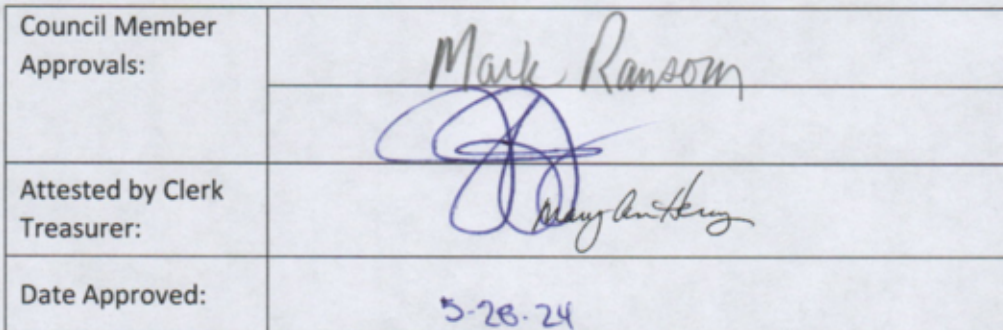 Council Member
Approvals:
Mark Ransom
Attested by Clerk
Treasurer:
Mary Ann Henry
Date Approved:
5-28-24